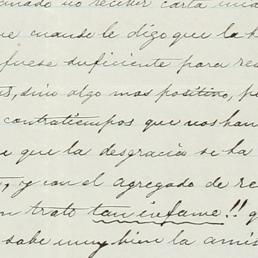 no recibir carta
cuando le digo que la
fuese suficiente para
sino algo mas positivo,
contratiempos que nos han
que la desgracia se ha
y con el agregado de re
trato tan infame!!
sabe muy bien la amis